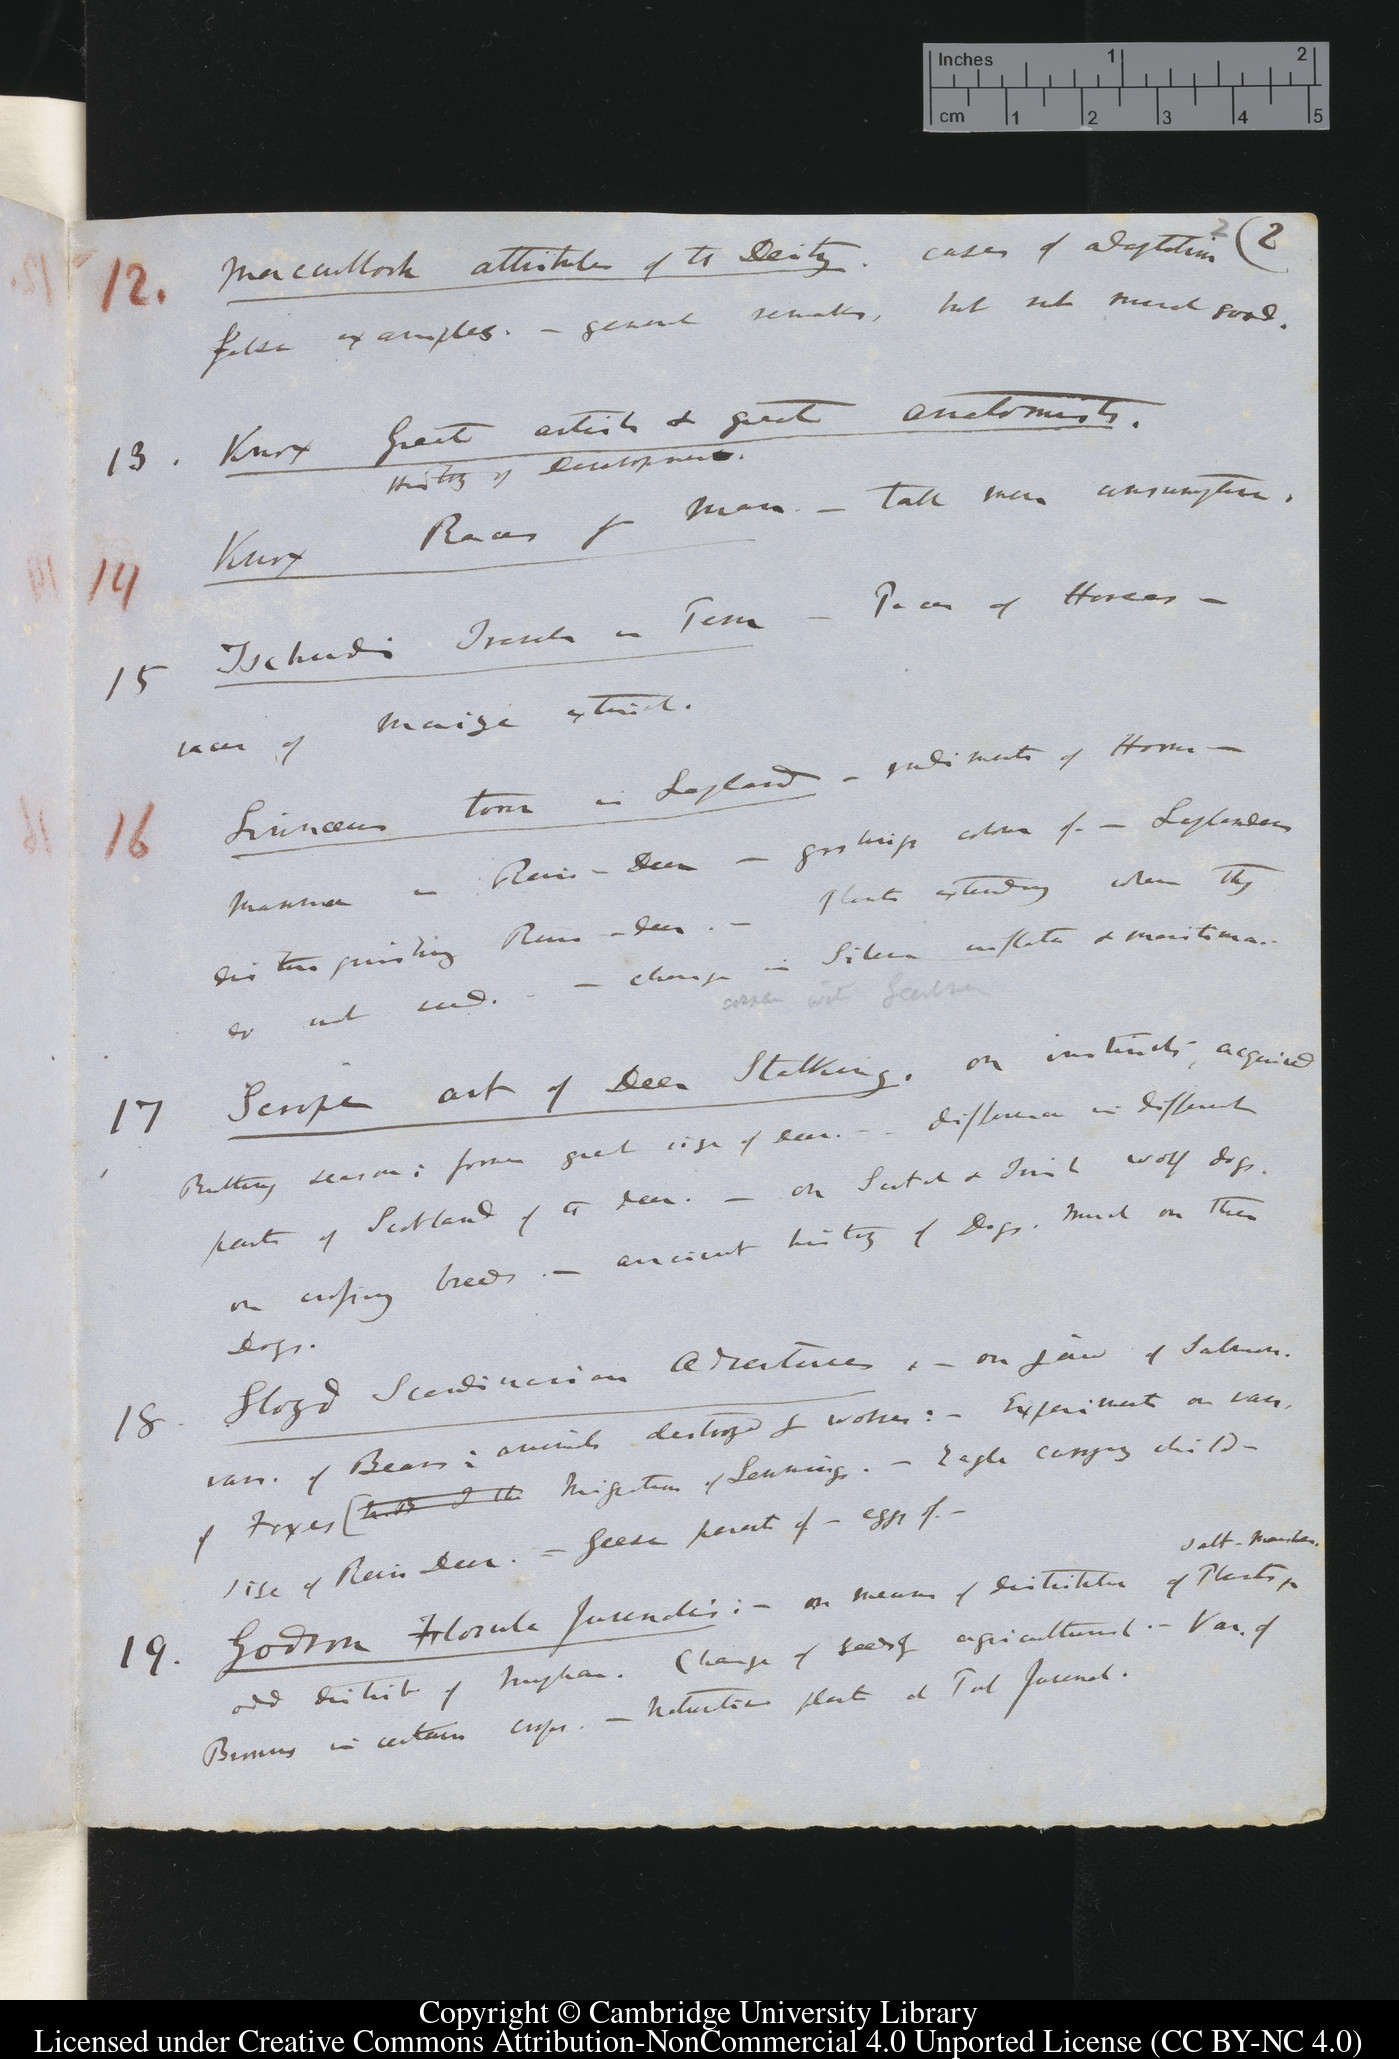 Inches 1 2
cm 1 2 3 4 5
2 (2
12. Macculloch attributes of the Deity. cases of adaptation
false examples. — general remarks, but not much good.
13. Knox Great artists & great anatomists.
History of Development.
14 Knox Races of Man. — Tall men consumption.
15 Tschudi Travels in Peru — Races of Horses —
races of Maize extinct.
16 Linnæus tour in Lapland — rudiments of Horns —
Mammæ in Rein-Deer — goslings colour of. — Laplanders
distinguishing Rein-deer. — Plants extending where they
do not seed. — change in Silene inflata & maritima.
17 Scrope art of Deer Stalking. on instincts, acquired
Rutting season: former great size of deer. — difference in different
parts of Scotland of the deer. — on Scotch & Irish wolf dogs.
on crossing breeds. — ancient history of Dogs. Much on these
Dogs.
18 Lloyd Scandinavian Adventures. — on jaw of Salmon.
vars. of Bears: animals destroyed by wolves: — Experiments on vars.
of Foxes Migration of Lemmings. — Eagle carrying child —
size of Rein Deer. — Geese parent of — eggs of. —
Salt-Marshes.
19. Godron Florula Juvenalis: — on means of distribution of Plants,
odd distrib of Nymphæa. Change of seeds agricultural. — Var. of
Bromus in certain crops. — Naturalised plants at Port Juvenal.
Copyright © Cambridge University Library
Licensed under Creative Commons Attribution-NonCommercial 4.0 Unported License (CC BY-NC 4.0)